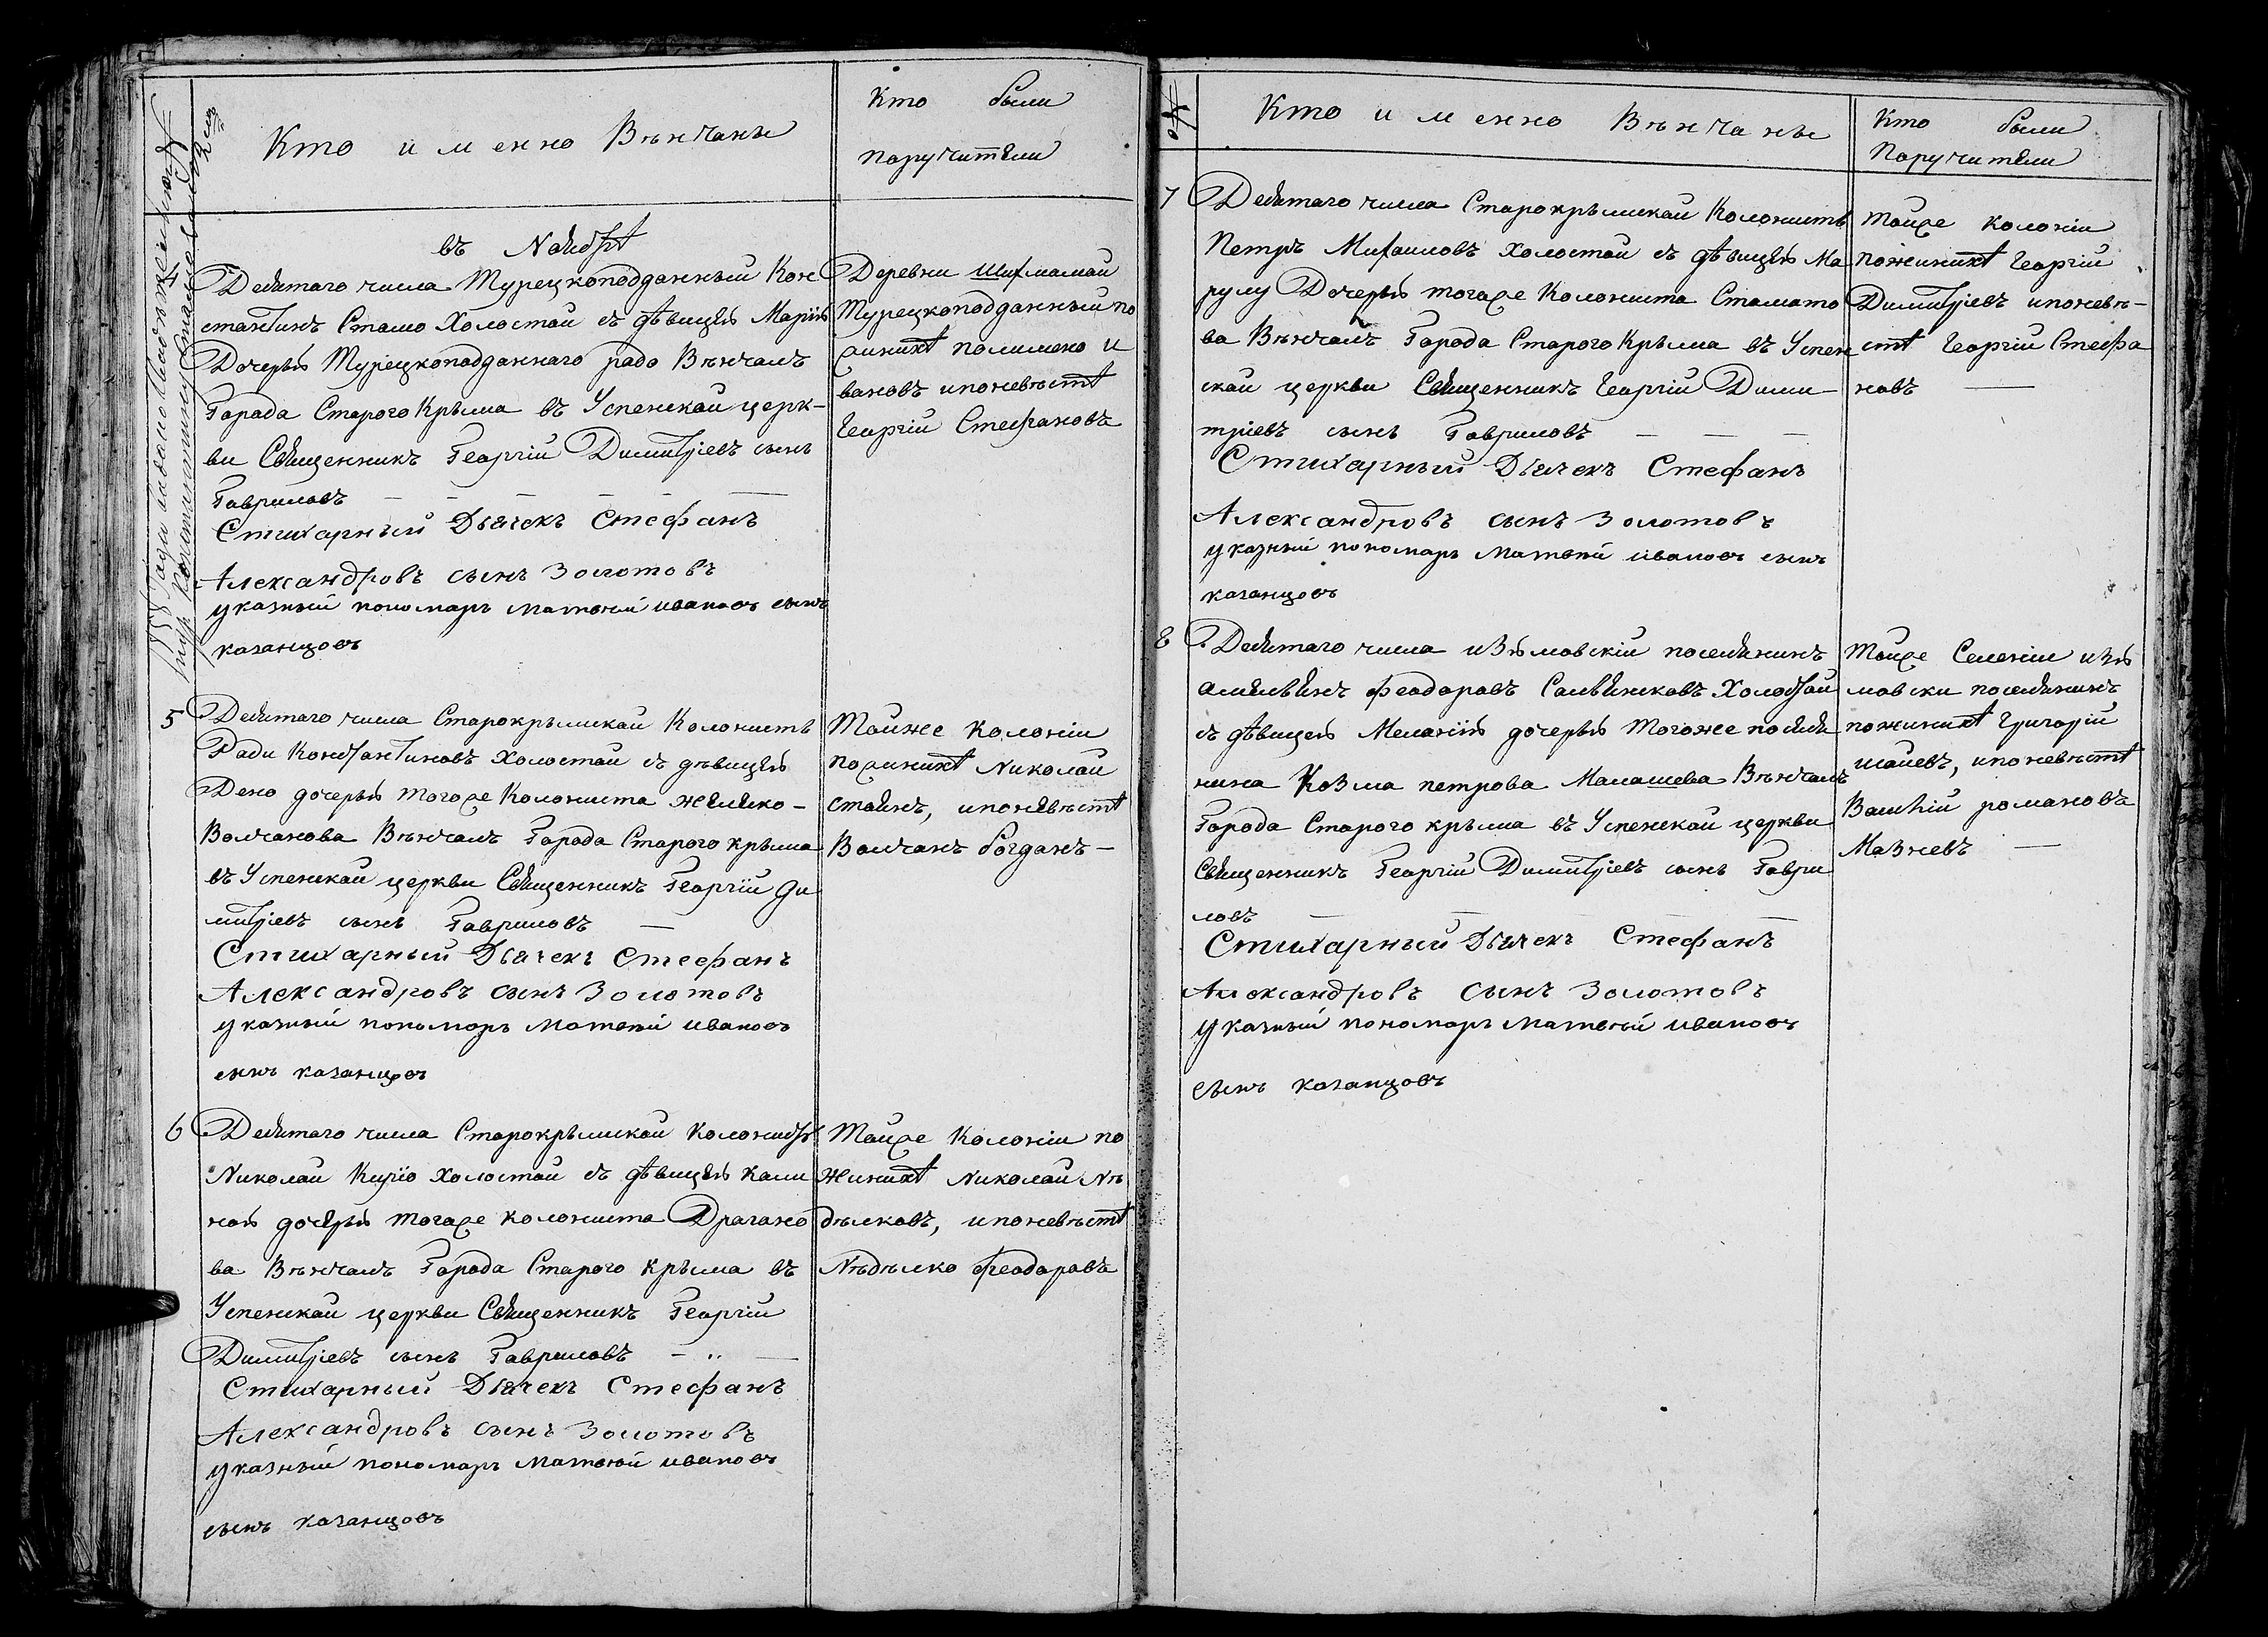 Кто именно Вѣнчаны
Кто были
поручители
въ Ноябрѣ
4
Девятаго числа Турецкоподданный Кон
стантинъ Стамо Холостой съ дѣвицею Маріею
Дочерью Турецкоподданнаго радо Вѣнчалъ
Города Стараго Крыма въ Успенской церк-
ви Священникъ Георгій Димитріевъ сынъ
Гавриловъ
Стихарный Дьячекъ Стефанъ
Александровъ сынъ Золотовъ
указный пономарь матвѣй ивановъ сынъ
казанцовъ
Деревни
Турецкоподданный по
женихѣ полимено и
вановъ и поневѣстѣ
Георгій Стефановъ
5
Девятаго числа Старокрымской Колонистъ
Ради Константиновъ Холостой съ дѣвицею
Дено дочерью тогоже Колониста желяко-
Волчанова Вѣнчалъ Города Стараго крыма
въ Успенской церкви Священникъ Георгій Ди
митріевъ сынъ Гавриловъ
Стихарный Дьячекъ Стефанъ
Александровъ сынъ Золотовъ
указный пономарь матвѣй ивановъ
сынъ казанцовъ
Тойже колоніи
поженихѣ Николай
стоянъ, и поневѣстѣ
Волчанъ богданъ-
6
Девятаго числа Старокрымской колонистъ
Николай Кирїо Холостой съ дѣвицею Кали
ною дочерью тогоже колониста Драгано
ва Вѣнчалъ Города Стараго Крыма въ
Успенской церкви Священникъ Георгій
Димитріевъ сынъ Гавриловъ
Стихарный Дьячекъ Стефанъ
Александровъ сынъ Золотовъ
указный пономарь матвѣй ивановъ
сынъ казанцовъ
Тойже Колоніи по
женихѣ Николай Не
дѣлковъ, и поневѣстѣ
Недѣлко феодоровъ
Кто именно Вѣнчаны
Кто были
Поручители
7
Девятаго числа Старокрымской Колонистъ
Петръ Михаиловъ Холостой съ дѣвицею Ма
рулу Дочерью тогоже Колониста Стамато
ва Вѣнчалъ Города Стараго Крыма въ Успен
ской церкви Священникъ Георгій Дими-
тріевъ сынъ Гавриловъ
Стихарный Дьячекъ Стефанъ
Александровъ сынъ Золотовъ
указный пономарь матвѣй ивановъ сынъ
казанцовъ
Тойже колоніи
поженихѣ Георгій
Димитріевъ и поневѣ-
стѣ Георгій Стефа
новъ
8
Девятаго числа изюмовскій поселянинъ
феодоровъ Холостой
съ дѣвицею Меланіею дочерью тогоже поселя
нина Козма петрова Малашева Вѣнчалъ
Города Стараго крыма въ Успенской церкви
Священникъ Георгій Димитріевъ сынъ Гаври
ловъ
Стихарный Дьячекъ Стефанъ
Александровъ сынъ Золотовъ
указный пономарь матвѣй ивановъ
сынъ казанцовъ
Тойже Селеніи изю
мовски поселянинъ
поженихѣ Григорій
и поневѣстѣ
Василій романовъ
Мазневъ